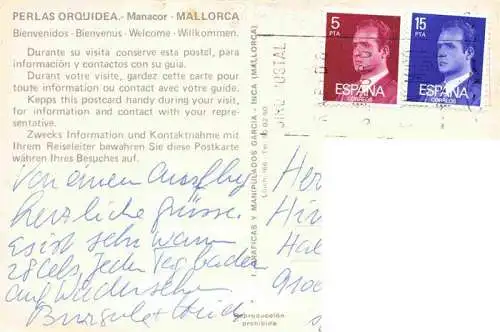 PERLAS ORQUIDEA.- Manacor - MALLORCA
Bienvenidos - Bienvenus - Welcome - Willkommen.
Durante su visita conserve esta postal, para
información y contactos con su guía.
Durant votre visite, gardez cette carte pour
toute information ou contact avec votre guide.
Kepps this postcard handy during your visit,
for information and contact with your repre-
sentative.
Zwecks Information und Kontaktnahme mit
Ihrem Reiseleiter bewahren Sie diese Postkarte
währen Ihres Besuches auf.
Von einem Ausflug
herzliche Grüsse.
Es ist sehr warm
28 Cels, Jeden Tag baden
auf Wiedersehen
I. GRAFICAS Y MANIPULADOS GARCIA - INCA (MALLORCA)
Reproducción
prohibida
5
PTA
ESPAÑA
CORREOS
15
PTA
ESPAÑA
CORREOS
POSTAL